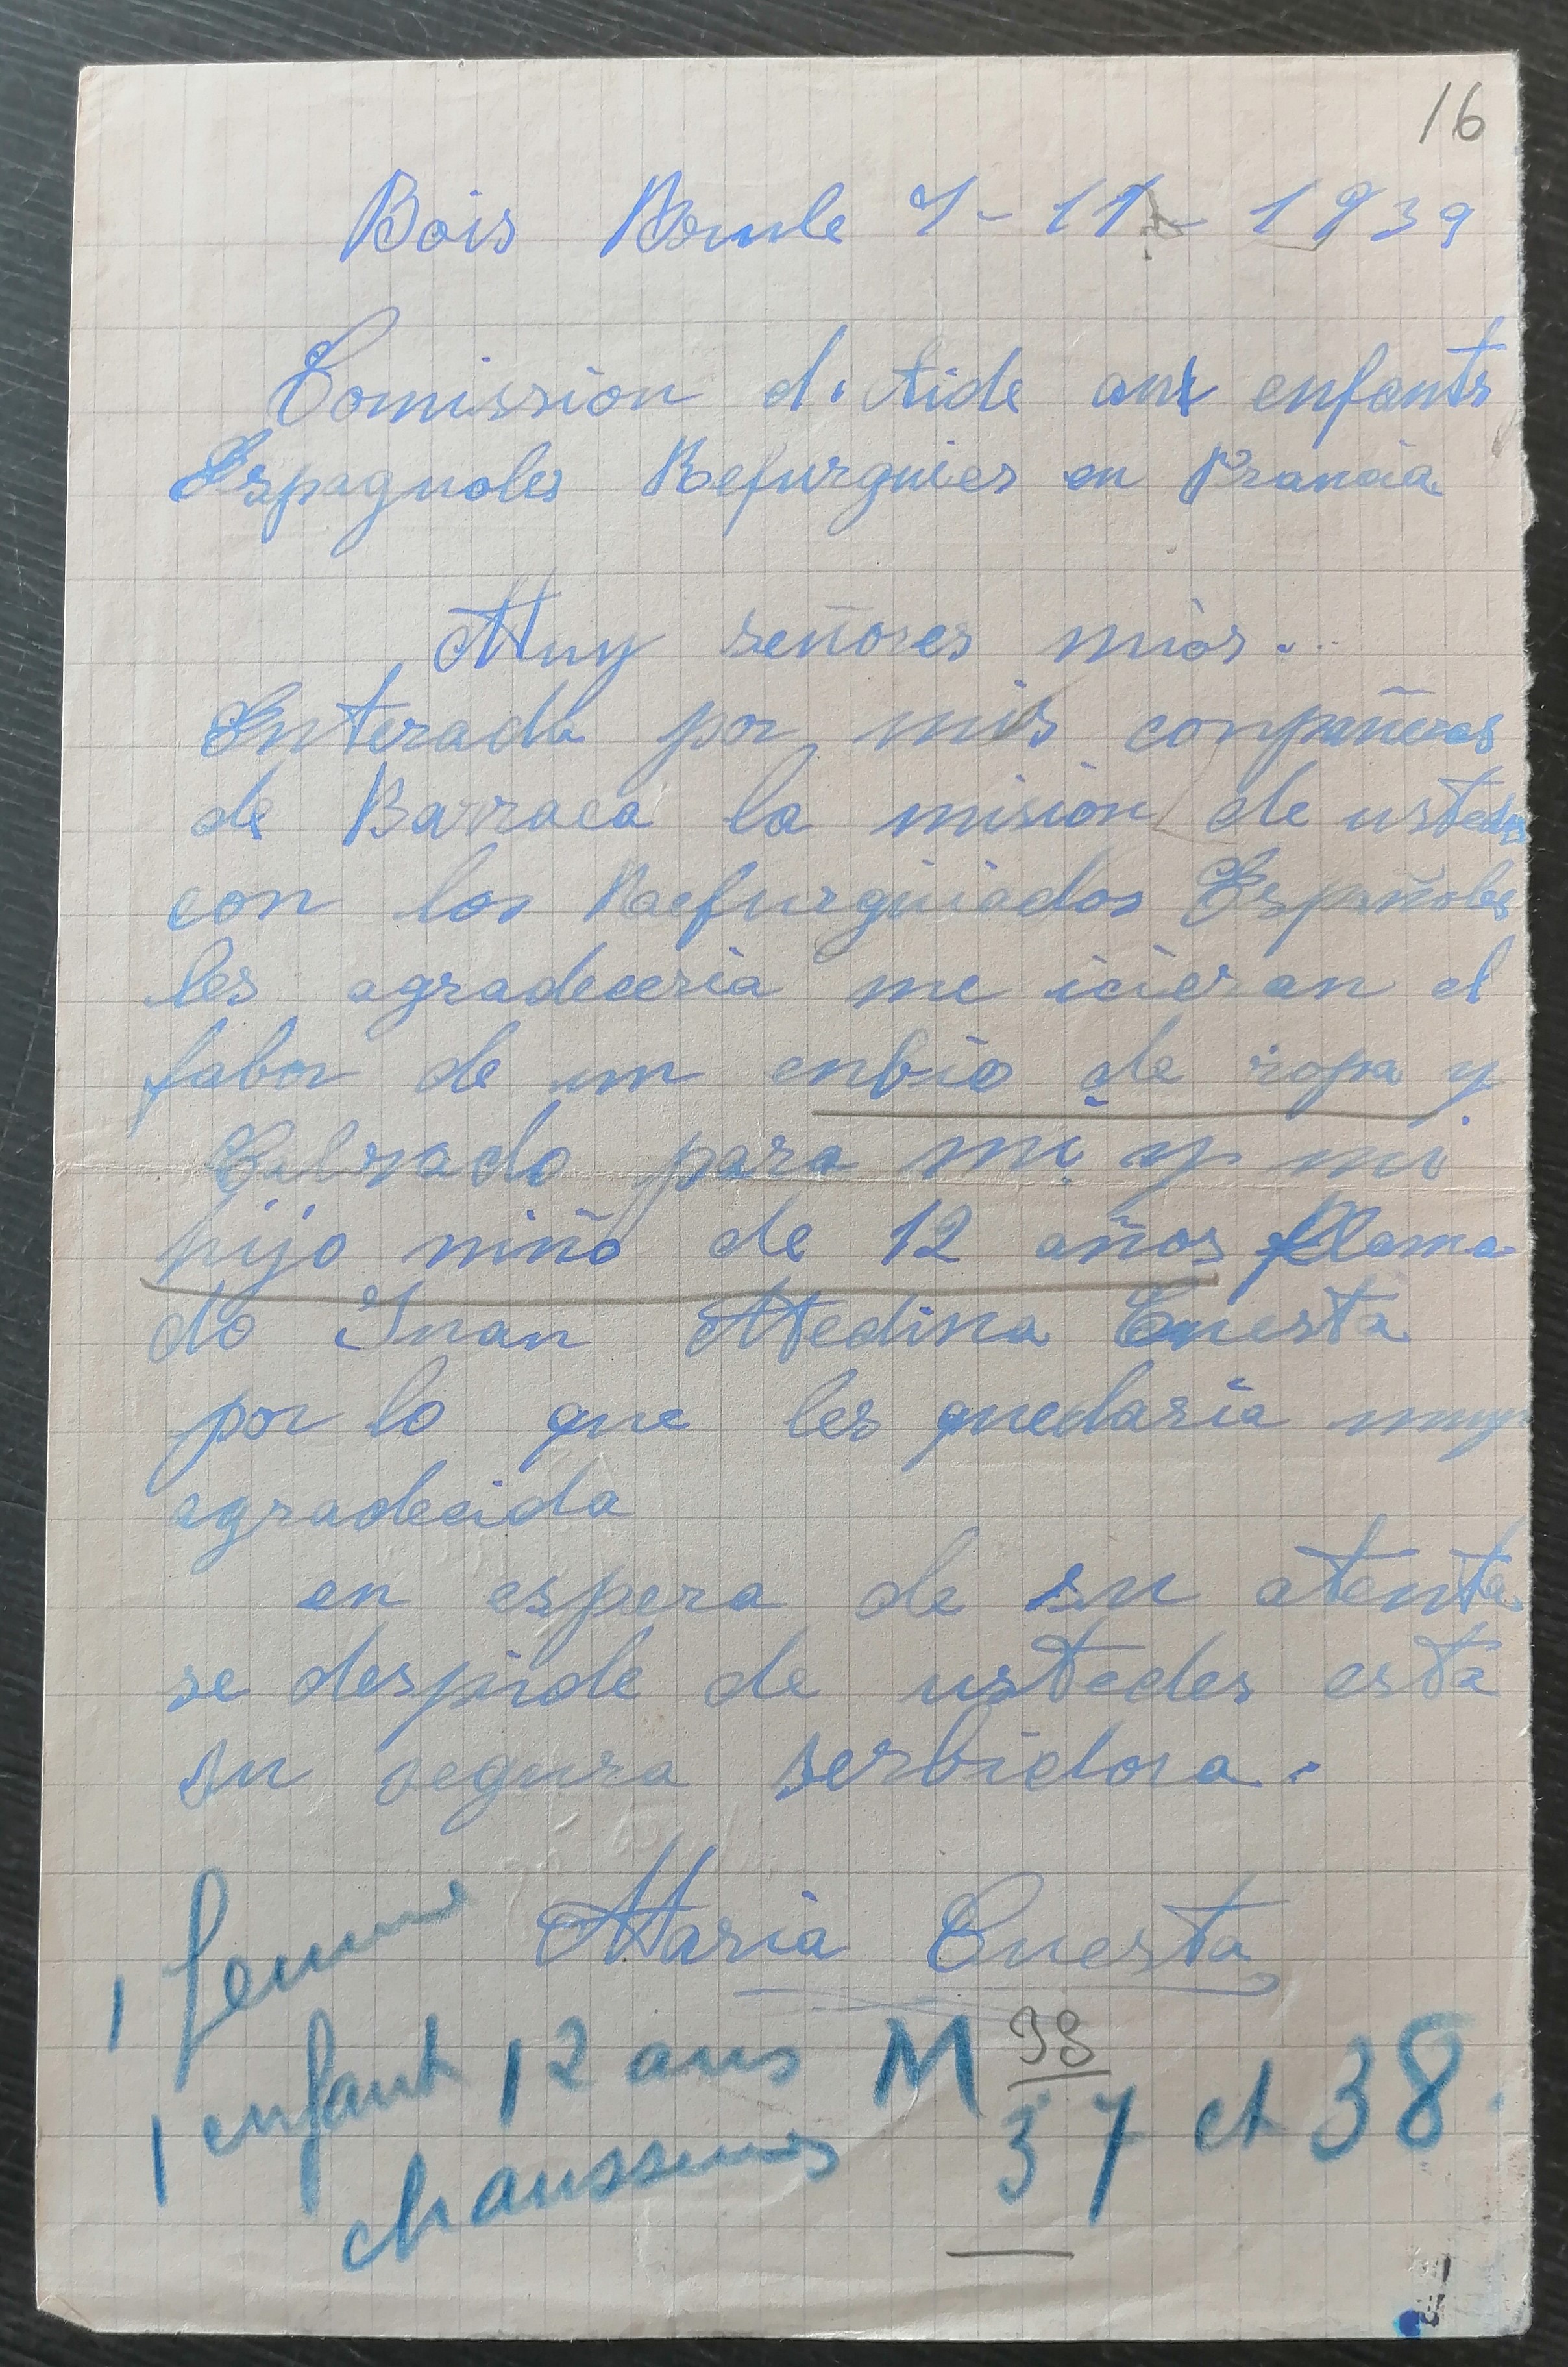 16
Bois Broule 7-11-1939
Comission d. Aide aux enfants
Espagnoles Refurguies en Francia
Muy señores mios..
Enterada por mis conpañeras
de Barraca la mision de ustedes
con los Raefurguiados Españoles
les agradeceria me icieran el
fabor de un enbio de ropa y
Calzado para mi y mi
hijo niño de 12 años llama
do Juan Medina Cuesta
por lo que les quedaria muy
agradecida
en espera de su atenta
se despide de ustedes esta
su segura serbidora.
Maria Cuesta
1 femme
1 enfant 12 ans M 38
chaussures 37 et 38.